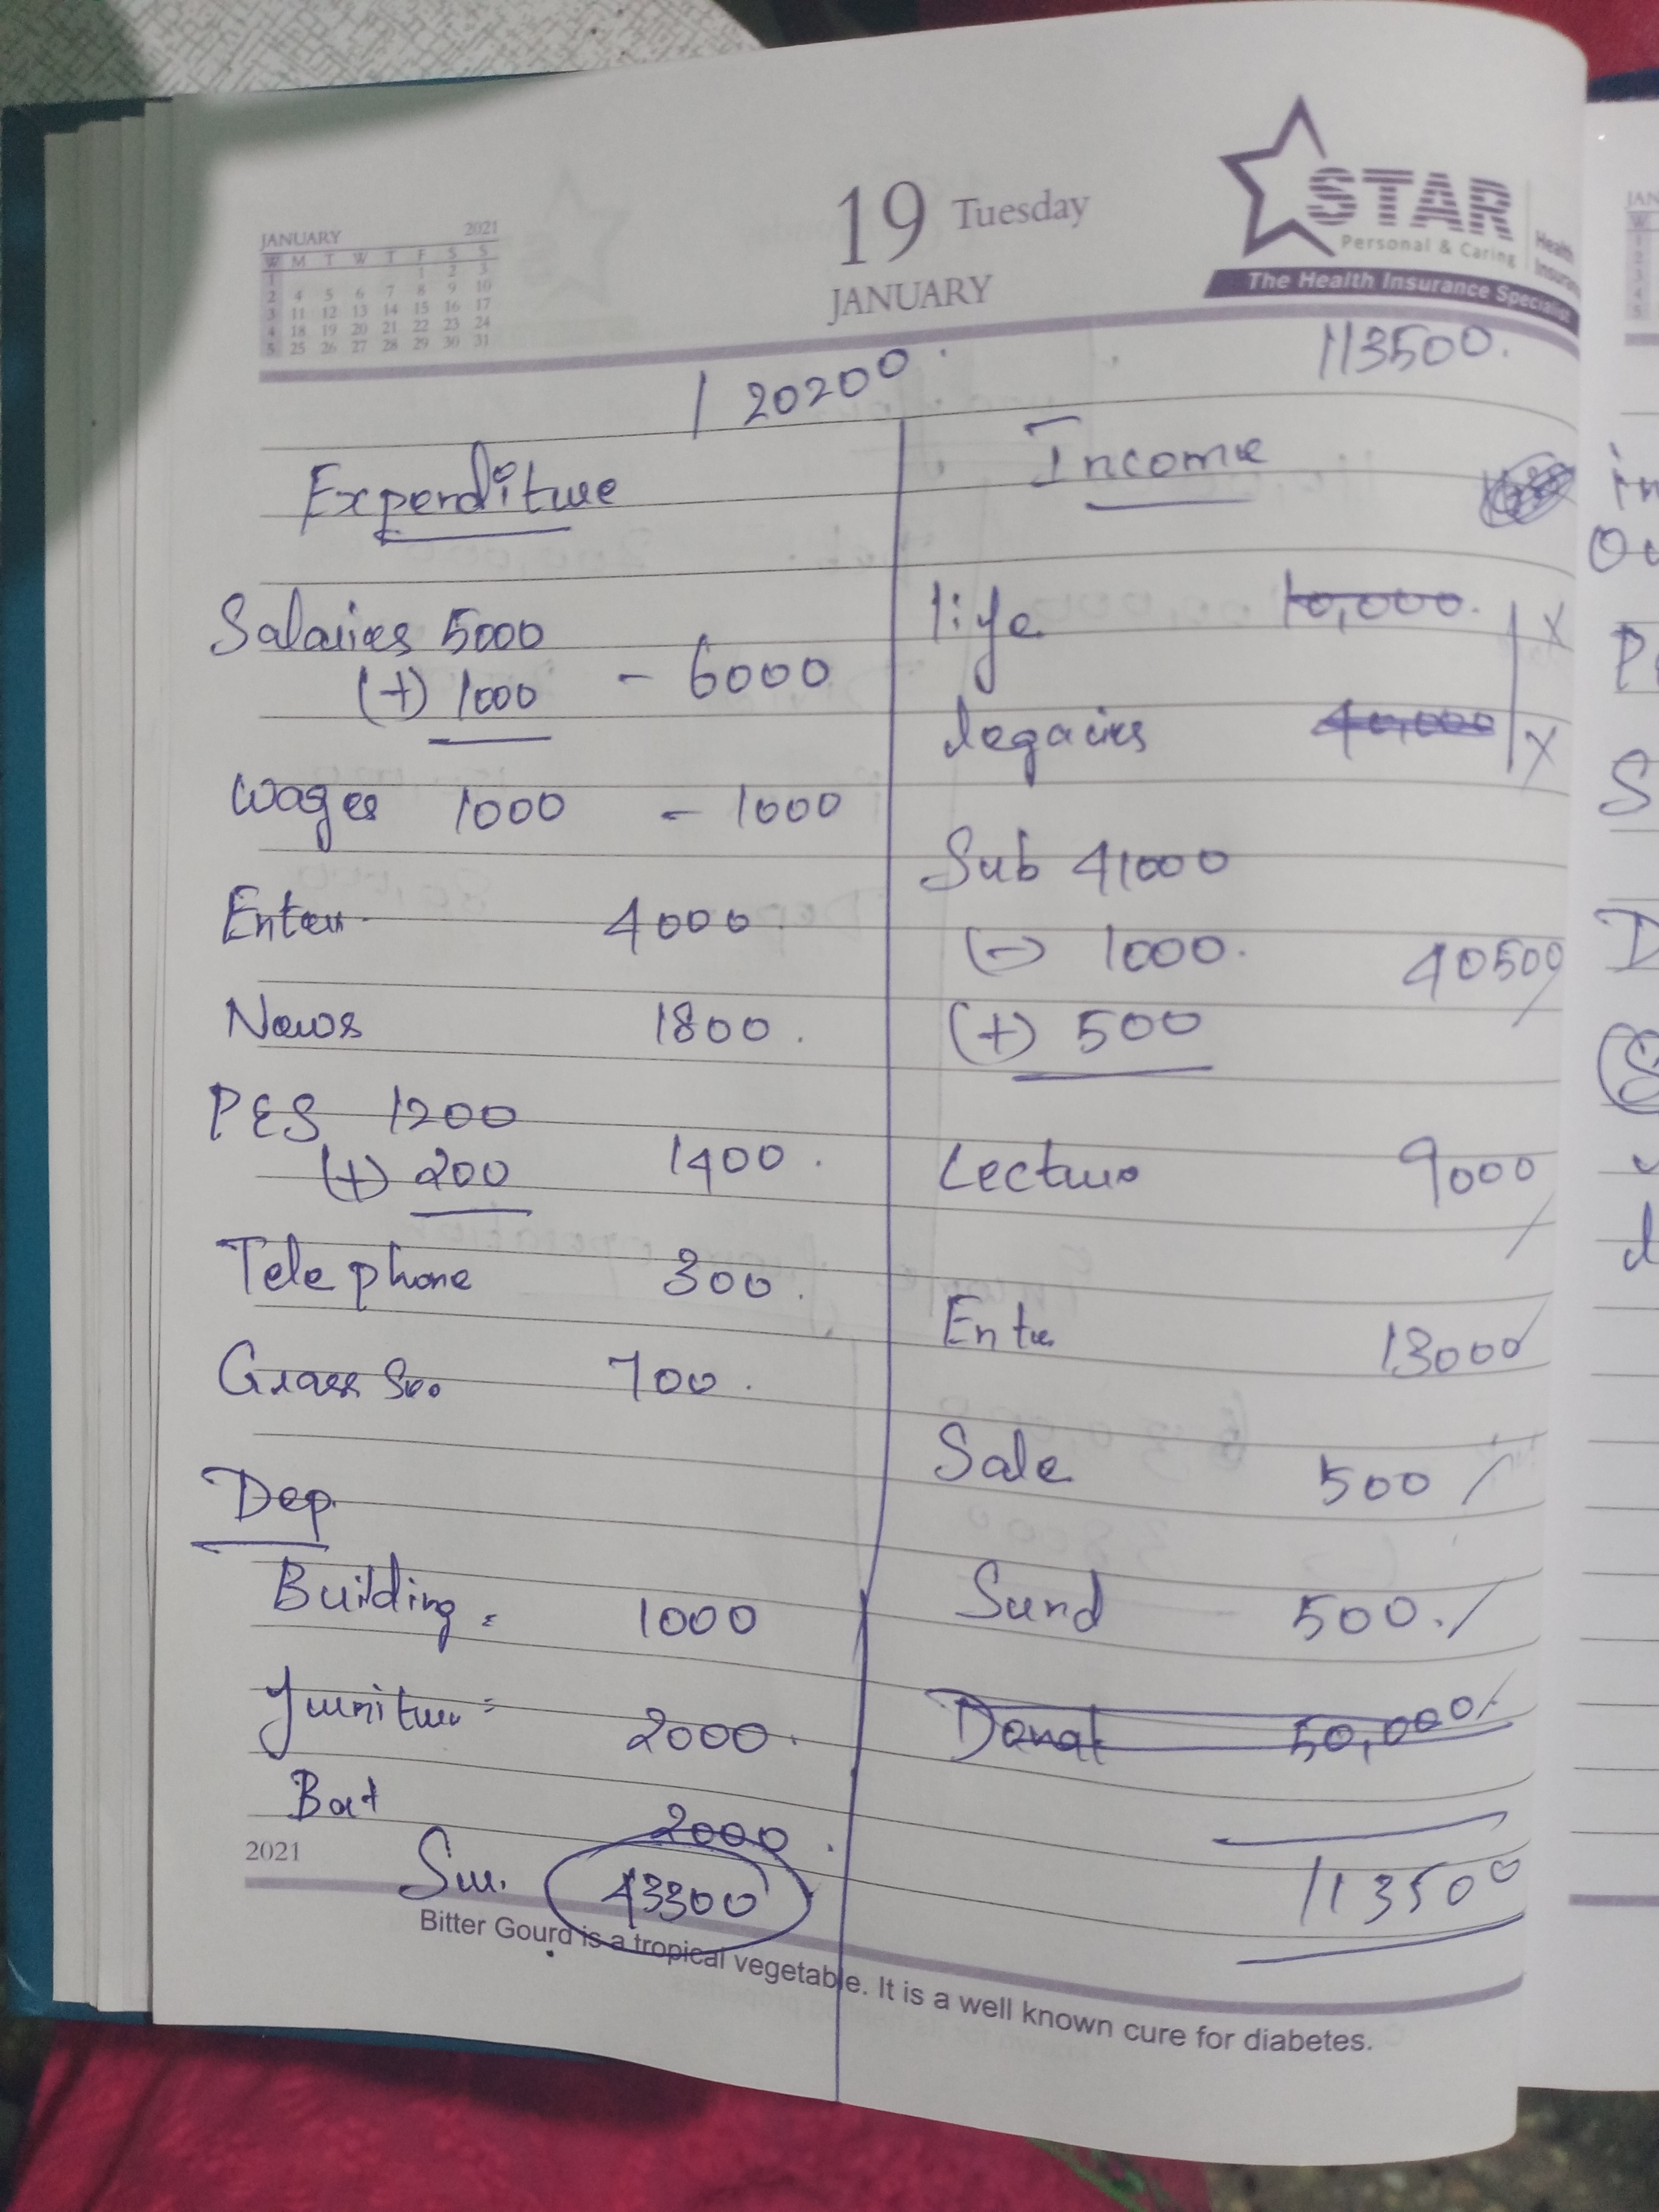 JANUARY 2021
W M T W T F S S
1 1 2 3
2 4 5 6 7 8 9 10
3 11 12 13 14 15 16 17
4 18 19 20 21 22 23 24
5 25 26 27 28 29 30 31
19 Tuesday
JANUARY
STAR Health
Personal & Caring
The Health Insurance Specialist
120200.
113500.
Expenditure
Salaries 5000
(+) 1000 - 6000
Wages 1000 - 1000
Enter 4000
News 1800.
PES 1200
(+) 200 1400.
Telephone 300.
Grass See. 700.
Dep.
Building = 1000
Furniture = 2000.
Bat 2000.
Sur. 43300
Income
life 10,000. X
legacies 40,000 X
Sub 41000
(-) 1000. 40500
(+) 500
Lecture 9000
Ente 13000
Sale 500
Sund 500.
Donat 50,000
113500
2021
Bitter Gourd is a tropical vegetable. It is a well known cure for diabetes.